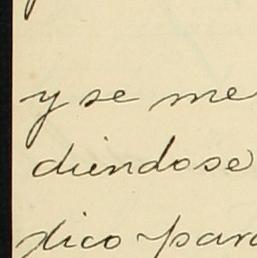 y se me
diendose
dico para